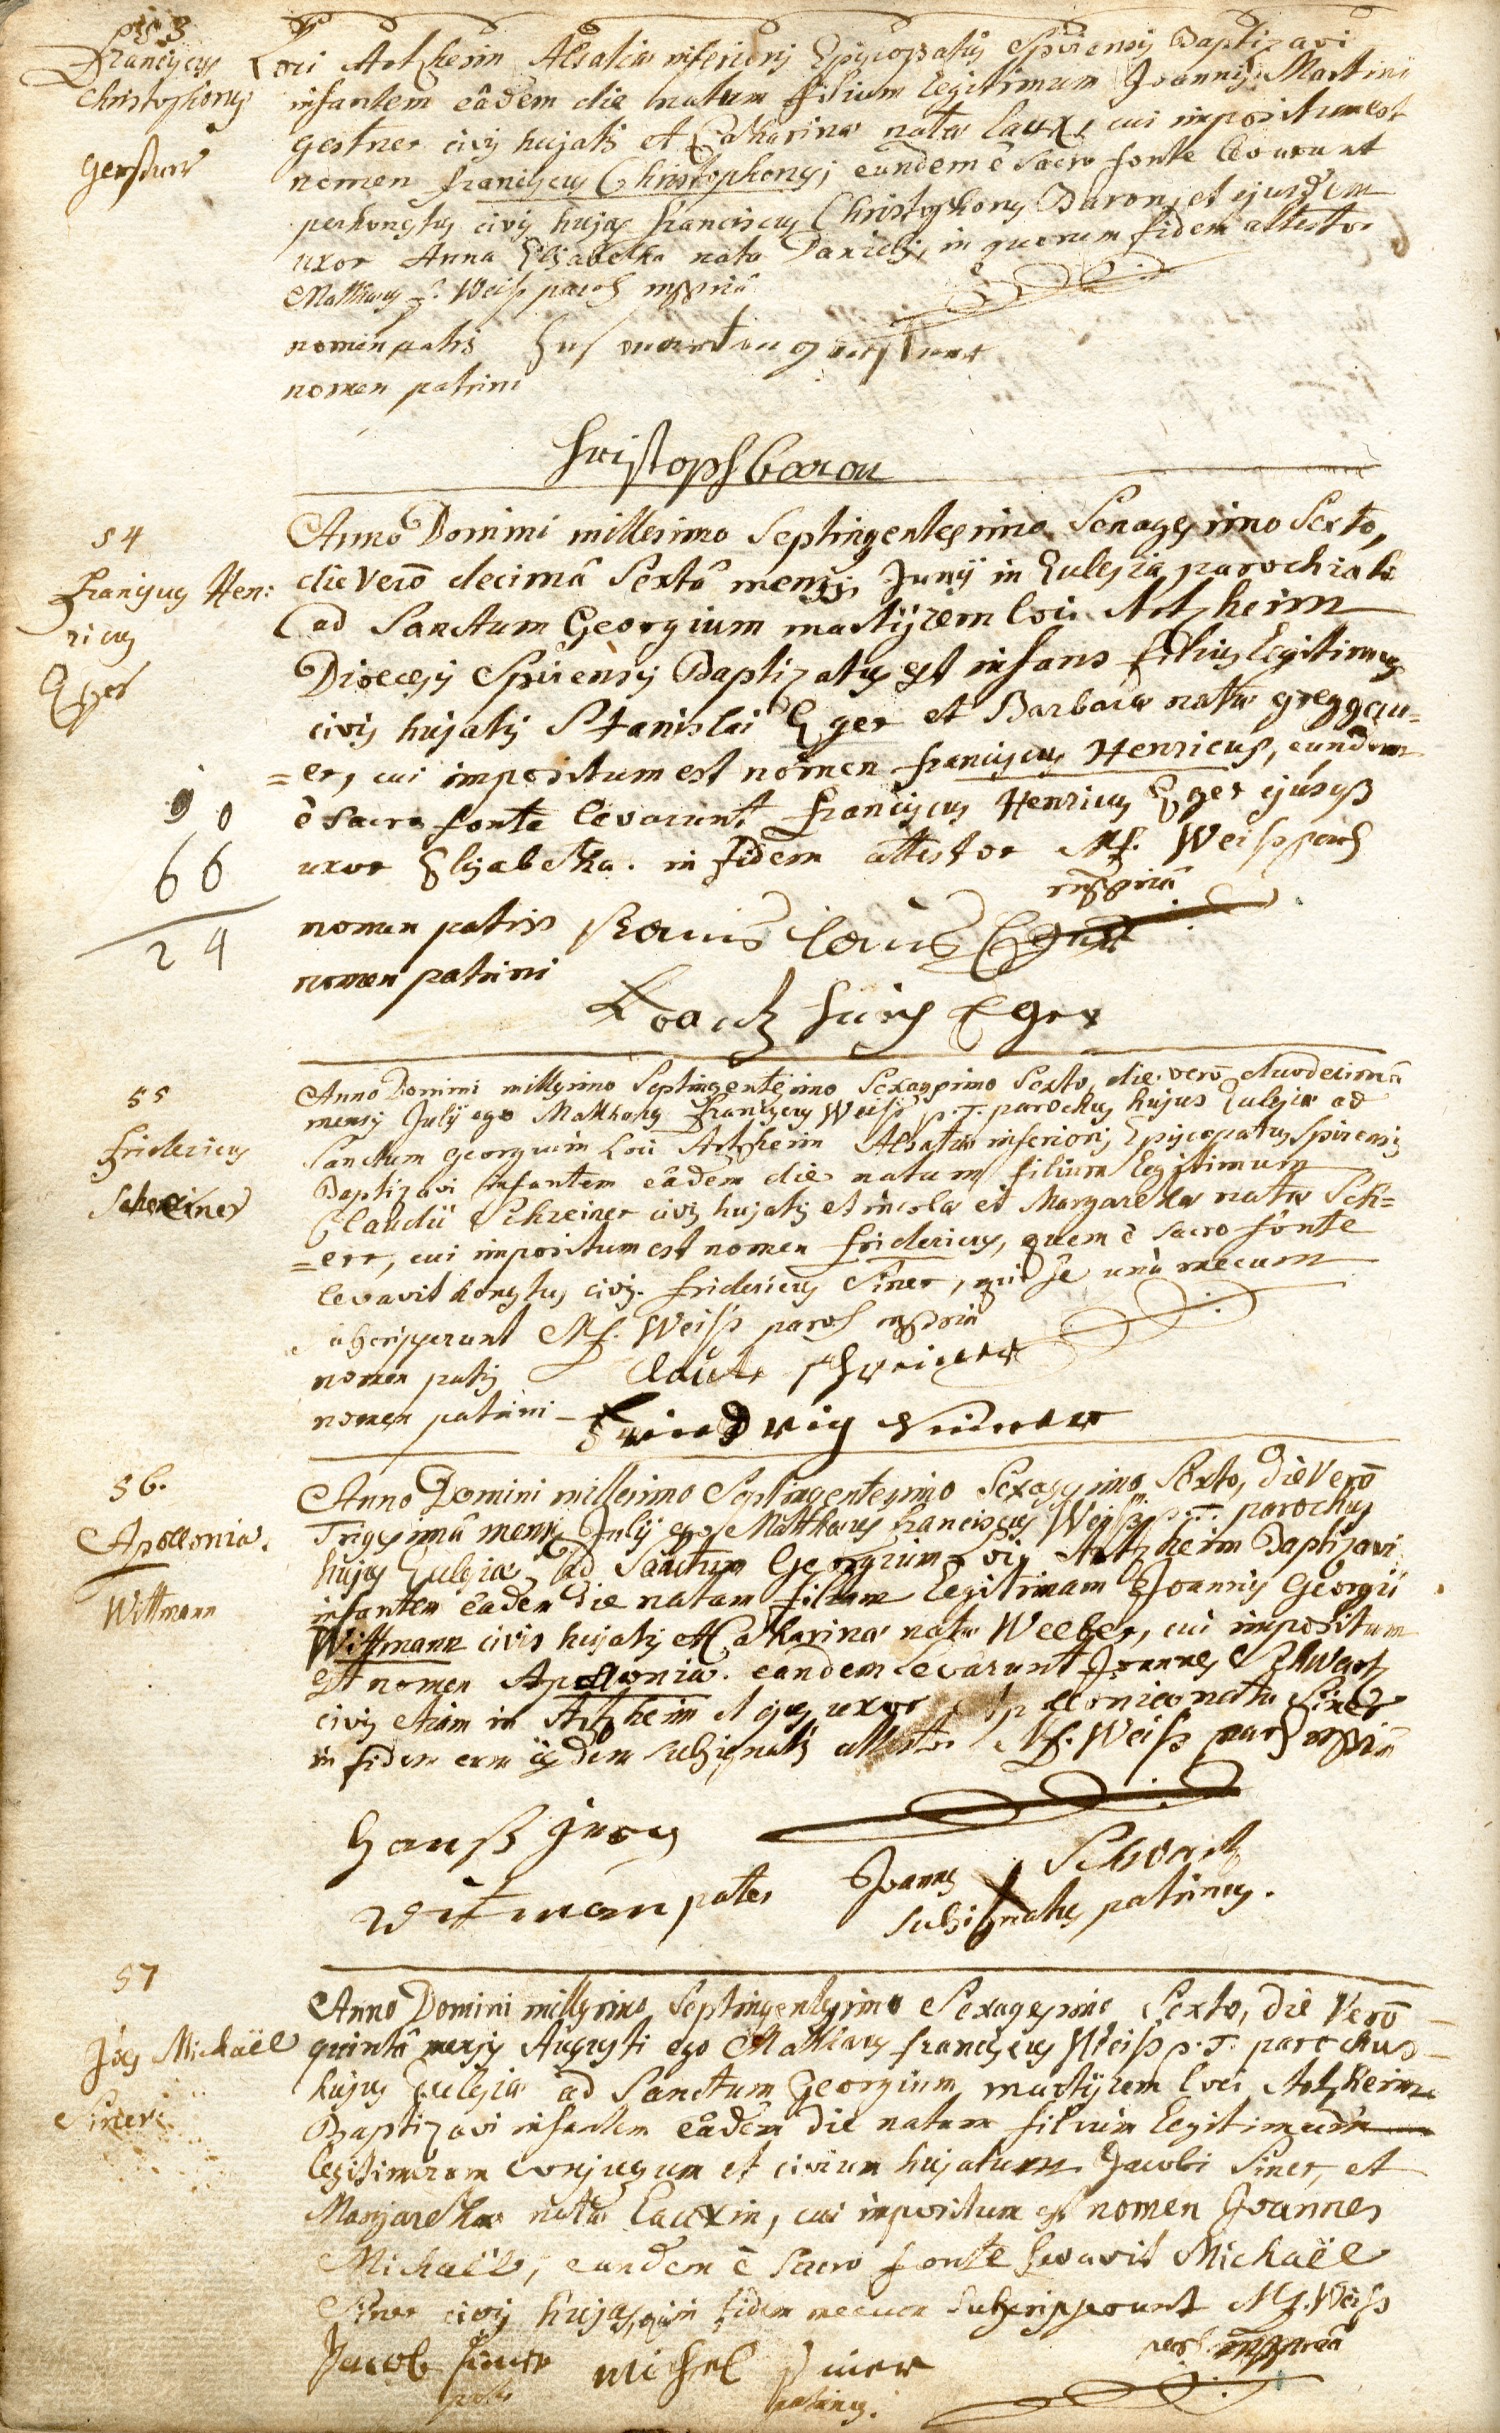 53
Franciscus
Christophorus
Gerstner
Loci Artzheim Alsatiae inferioris Episcopatus Spirensis Baptizavi
infantem eâdem die natum filium legitimum Joannis Martini
gestner civis hujatis et Catharinae natae Laux, cui impositum est
nomen Franciscus Christophorus; eundem è sacro fonte levarunt
perhonestus civis hujas Franciscus Christophorus Baron, et ejusdem
uxor Anna Elisabetha nata in quorum fidem attestor
Matthaeus F. Weiss paroch mppriâ
nomen patris Hans martin gerstner
nomen patrini
Christoph baron
54
Franciscus Hen:
ricus
Eger
Anno Domini millesimo Septingentesimo Sexagesimo Sexto,
die verò decimâ Sextâ mensis Junij in Eclesia parochiali
ad Sanctum Georgium martÿrem loci Artzheim
Dioecesis Spirensis Baptizatus est infans filius legitimus
civis hujatis Stanislai Eger et Barbara nata greggau=
=er, cui impositum est nomen Franciscus Henricus, eundem
è Sacro fonte levarunt Franciscus Henricus Eger ejusque
uxor Elisabetha. in fidem attestor Mf. Weiss paroch
mppriâ
90
66
24
nomen patris Stanis laus Eger
nomen patrini
Frantz Henrich Eger
55
Fridericus
Schreiner
Anno Domini millesimo Septingentesimo Sexagesimo Sexto, die verò duodecimâ
mensis Julij ego Matthaeus Franciscus Weiss p.T. parochus hujus Eclesiae ad
Sanctum georgium Loci Artzheim Alsatiae inferioris Episcopatus Spirensis
Baptizavi infantem eâdem die natum filium legitimum
Claudii Schreiner civis hujatis et incolae et Margaretha nata Sch=
=err, cui impositum est nomen Fridericus, quem è sacro fonte
levavit honestus civis Fridericus Siner, qui se unà mecum
subscripserunt Mf. Weiss paroch mppriâ
nomen patris Claude schreiner
nomen patrini Friedrig Siner
56.
Apollonia.
Wittmann
Anno Domini millesimo Septingentesimo Sexagesimo Sexto, die verò
Trigesimâ mensis Julij ego Matthaeus Franciscus Weiss p.T. parochus
hujus Eclesiae ad Sanctum Georgium loci Artzheim Baptizavi
infantem eâdem die natam filiam legitimam Joannis Georgii
Wittmann civis hujatis et Catharina nata Weeber, cui impositum
est nomen Apollonia. eandem levarunt Joannes Schwartz
civis etiam in Artzheim et ejus uxor Apollonia nata Siner
in fidem cum iisdem subsignatis attestor Mf. Weiss paroch mppriâ
Hanss jerg
witman pater
Joannes X Schwartz
subsignatus patrinus.
57
Joes Michaël
Siner
Anno Domini millesimo Septingentesimo Sexagesimo Sexto, die Verò
quintâ mensis Augusti ego Matthaeus Franciscus Weiss p.T. parochus
hujus Eclesiae ad Sanctum Georgium martÿrem loci Artzheim
Baptizavi infantem eâdem die natum filium legitimum
legitimorum conjugum et civium hujatum Jacobi Siner, et
Margaretha nata Lauxin, cui impositum est nomen Joannes
Michaël, eundem è sacro fonte levavit Michaël
Siner civis hujas, qui in fidem mecum subscripserunt Mf. Weiss
paroch mppriâ
Jacob siner michel siner
pater patrinus.